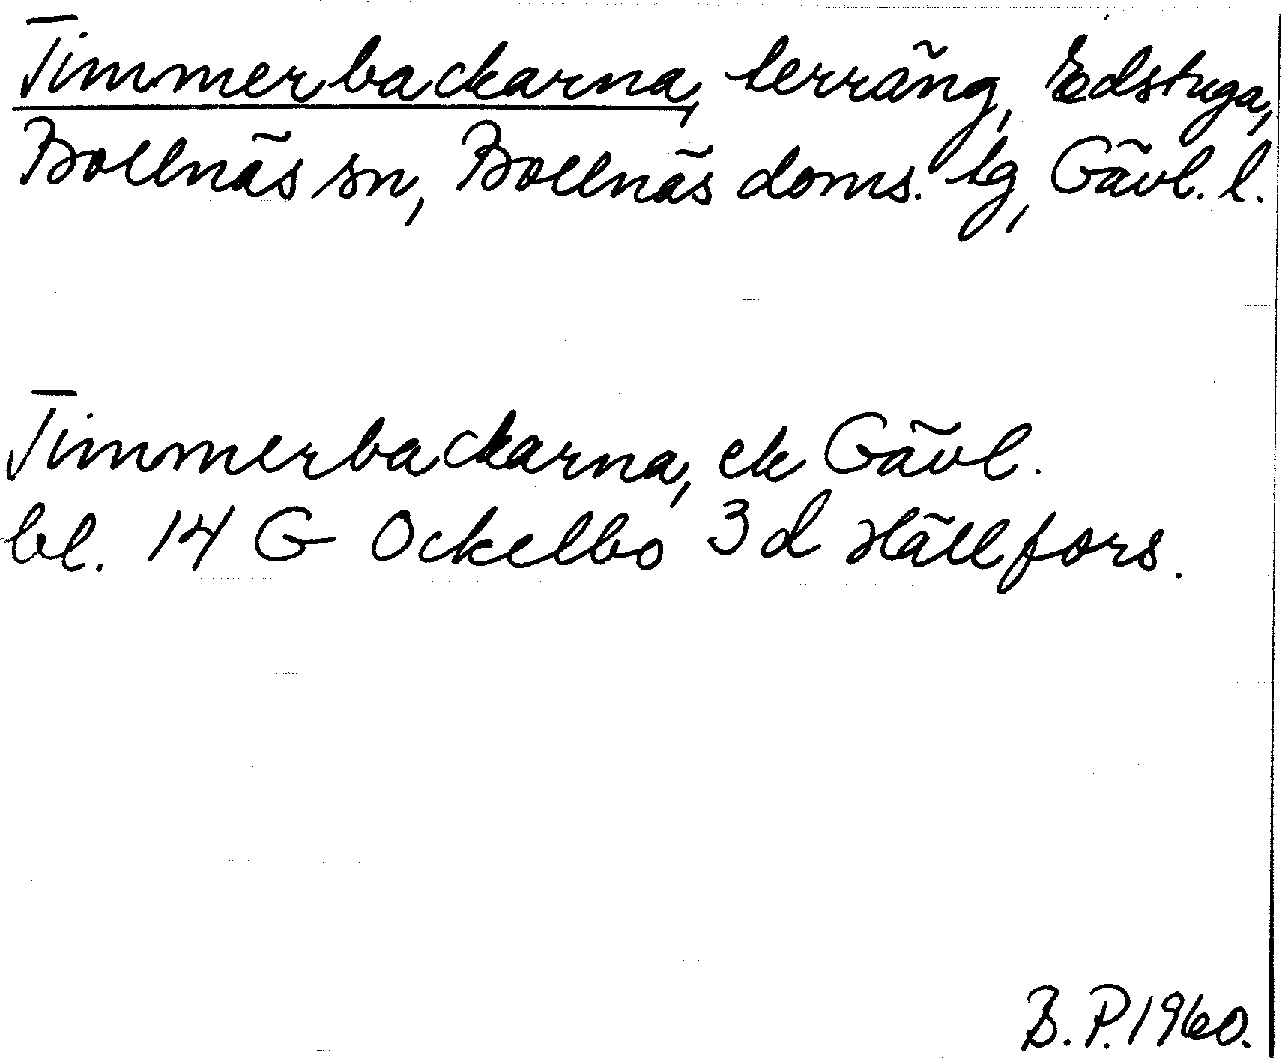 Timmerbackarna, terräng, Edstuga,
Bollnäs sn, Bollnäs doms. tg, Gävl. l.
Timmerbackarna, ek Gävl.
bl. 14 G Ockelbo 3 d Hällfors.
B. P. 1960.